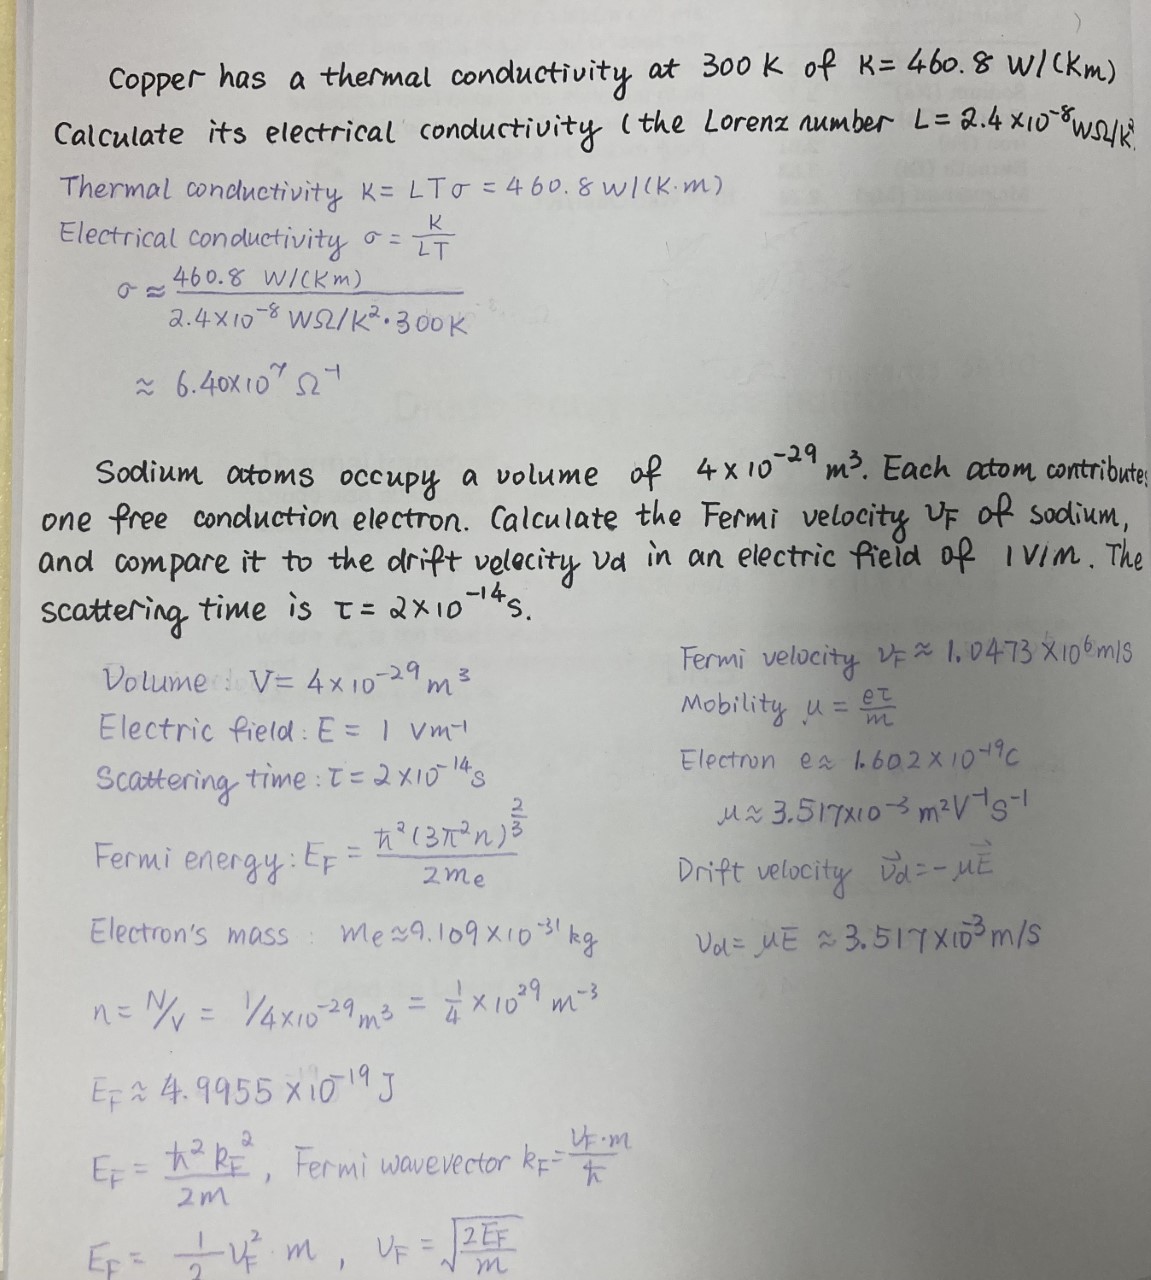 Copper has a thermal conductivity at 300 K of K = 460.8 W/(Km)
Calculate its electrical conductivity (the Lorenz number L = 2.4 ×10⁻⁸ WΩ/K².
Thermal conductivity K = LTσ = 460.8 W/(K·m)
Electrical conductivity σ = K/LT
σ ≈ 460.8 W/(Km) / 2.4×10⁻⁸ WΩ/K²·300K
≈ 6.40×10⁷ Ω⁻¹
Sodium atoms occupy a volume of 4×10⁻²⁹ m³. Each atom contributes
one free conduction electron. Calculate the Fermi velocity VF of sodium,
and compare it to the drift velocity vd in an electric field of 1 V/m. The
scattering time is τ = 2×10⁻¹⁴s.
Volume : V = 4×10⁻²⁹ m³
Electric field : E = 1 Vm⁻¹
Scattering time : τ = 2×10⁻¹⁴s
Fermi energy : EF = ħ²(3π²n)^(2/3) / 2me
Electron's mass : me ≈ 9.109×10⁻³¹ kg
n = N/V = 1/4×10⁻²⁹m³ = 1/4 × 10²⁹ m⁻³
EF ≈ 4.9955 ×10⁻¹⁹ J
EF = ħ²kF² / 2m , Fermi wavevector kF = VF·m / ħ
EF = 1/2 VF² · m , VF = √(2EF/m)
Fermi velocity VF ≈ 1.0473 ×10⁶m/s
Mobility μ = eτ/m
Electron e ≈ 1.602×10⁻¹⁹C
μ ≈ 3.517×10⁻³ m²V⁻¹s⁻¹
Drift velocity v⃗d = -μE⃗
Vd = μE ≈ 3.517×10⁻³m/s